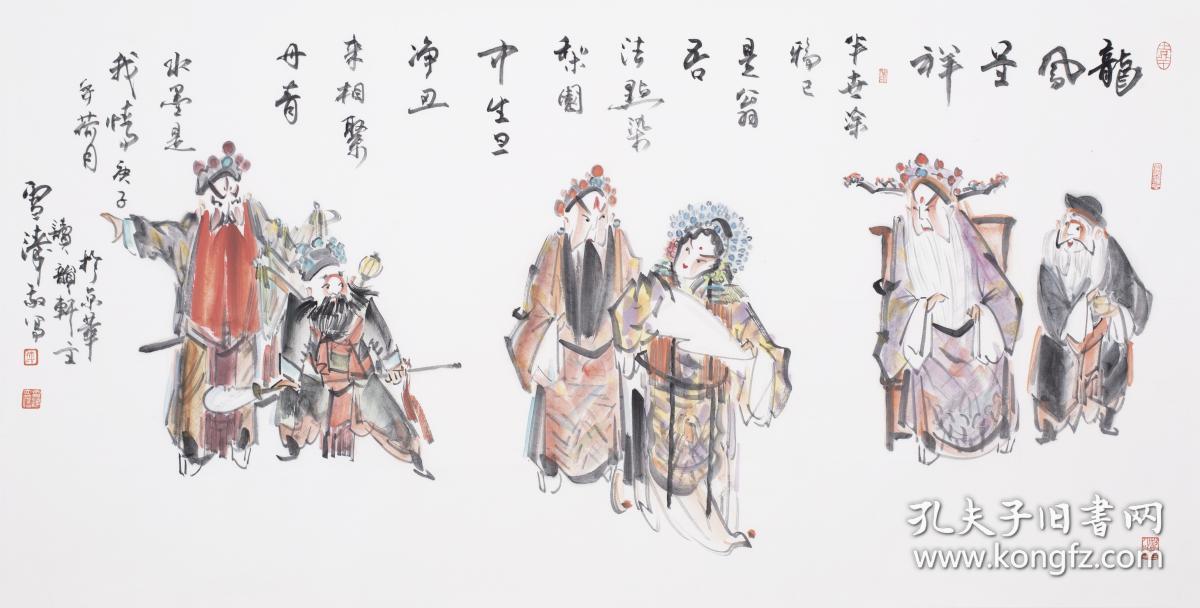 龍
鳳
呈
祥
半世塗
鴉已
是翁
吾
法點染
梨園
中生旦
净丑
来相聚
丹青
水墨是
我情庚子
年荷月
於京華
讀韻軒主
雪濤敬寫
孔夫子旧书网
www.kongfz.com